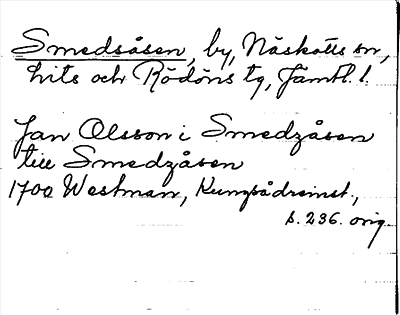 Smedsåsen, by, Näskotts sn,
Lits och Rödöns tg, Jämtl. l.
Jan Olsson i Smedzåsen
till Smedzåsen
1700 Westman, Kungsådreinst.,
s. 236. orig.